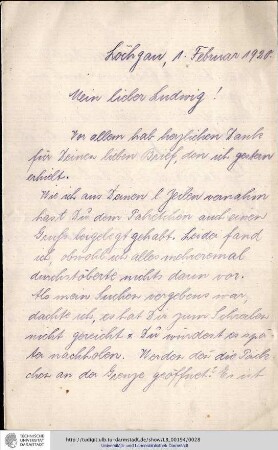 Löchgau, 1. Februar 1920.
Mein lieber Ludwig!
Vor allem hab herzlichen Dank
für Deinen lieben Brief, den ich gestern
erhielt.
Wie ich aus Deinen l. Zeilen vernahm
hast Du dem Paketchen auch einen
Gruß beigelegt gehabt. Leider fand
ich, obwohl ich alles mehreremal
durchstöberte nichts davon vor.
Als mein Suchen vergebens war,
dachte ich, es hat Dir zum Schreiben
nicht gereicht & Du würdest es spä-
ter nachholen. Werden den die Päck-
chen an der Grenze geöffnet? Es ist
TECHNISCHE
UNIVERSITÄT
DARMSTADT
http://tudigit.ulb.tu-darmstadt.de/show/
Universitäts- und Landesbibliothek Darmstadt